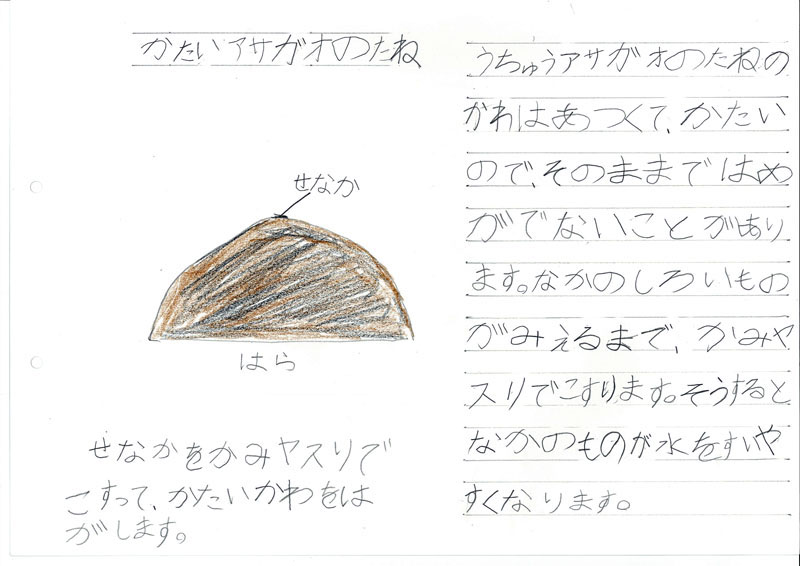 かたいアサガオのたね
せなか
はら
せなかをかみヤスリで
こすって、かたいかわをは
がします。
うちゅうアサガオのたねの
かわはあつくて、かたい
ので、そのままではめ
がでないことがあり
ます。なかのしろいもの
がみえるまで、かみヤ
スリでこすります。そうすると
なかのものが水をすいや
すくなります。